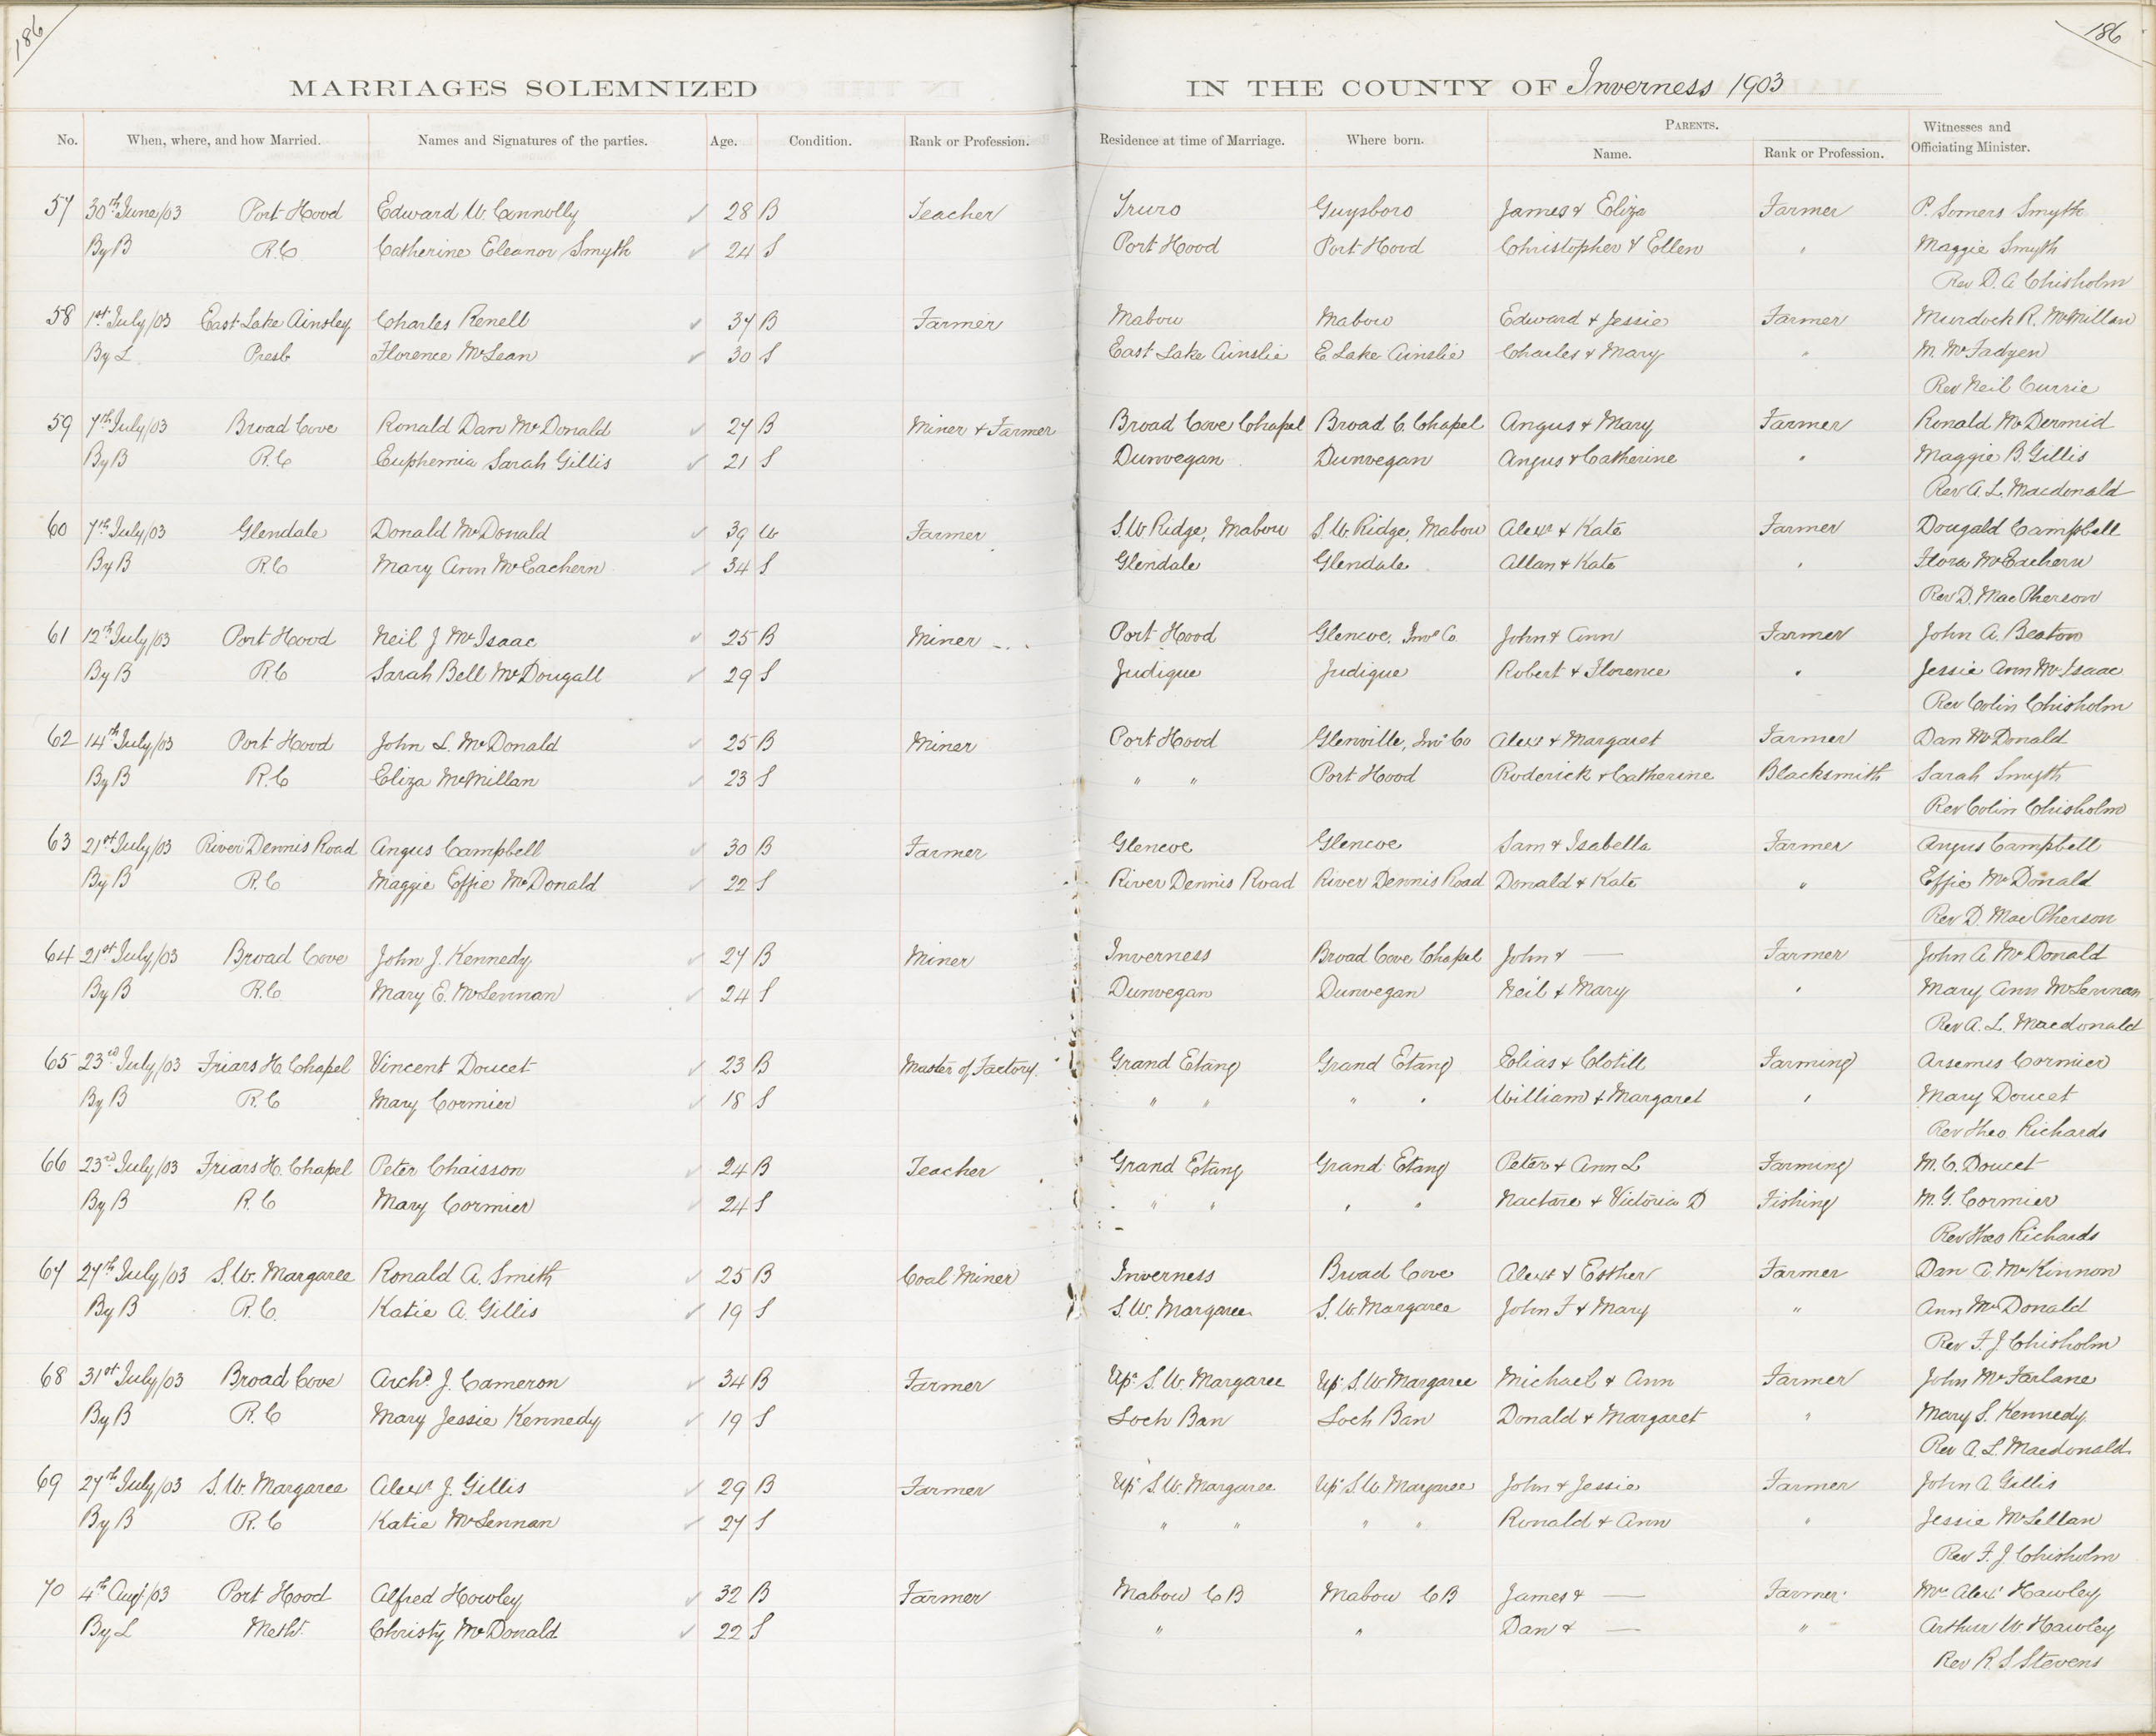 186
186
MARRIAGES SOLEMNIZED IN THE COUNTY OF Inverness 1903
No. When, where, and how Married. Names and Signatures of the parties. Age. Condition. Rank or Profession. Residence at time of Marriage. Where born. PARENTS. Name. Rank or Profession. Witnesses and Officiating Minister.
57 30th June/03 Port Hood Edward W. Connolly ✓ 28 B Teacher Truro Guysboro James & Eliza Farmer P. Somers Smyth
By B R.C. Catherine Eleanor Smyth ✓ 24 S Port Hood Port Hood Christopher & Ellen " Maggie Smyth
Rev D. A Chisholm
58 1st July/03 East Lake Ainsley Charles Renell ✓ 37 B Farmer Mabou Mabou Edward & Jessie Farmer Murdock R. McMillan
By L Presb Florence McLean ✓ 30 S East Lake Ainslie E Lake Ainslie Charles & Mary " M. McFadyen
Rev Neil Currie
59 7th July/03 Broad Cove Ronald Dan McDonald ✓ 27 B Miner & Farmer Broad Cove Chapel Broad C. Chapel Angus & Mary Farmer Ronald McDermid
By B R.C Euphemia Sarah Gillis ✓ 21 S Dunvegan Dunvegan Angus & Catherine " Maggie B. Gillis
Rev A. L. Macdonald
60 7th July/03 Glendale Donald McDonald ✓ 39 W Farmer S.W Ridge, Mabou S.W. Ridge, Mabou Alexr & Kate Farmer Dougald Campbell
By B R.C Mary Ann McEachern ✓ 34 S Glendale Glendale Allan & Kate " Flora McEachern
Rev D. MacPherson
61 12th July/03 Port Hood Neil J McIsaac ✓ 25 B Miner Port Hood Glencoe, Inve Co John & Ann Farmer John A. Beaton
By B R.C Sarah Bell McDougall ✓ 29 S Judique Judique Robert & Florence " Jessie Ann McIsaac
Rev Colin Chisholm
62 14th July/03 Port Hood John L. McDonald ✓ 25 B Miner Port Hood Glenville, Inv Co Alexr & Margaret Farmer Dan McDonald
By B R.C Eliza McMillan ✓ 23 S " " Port Hood Roderick & Catherine Blacksmith Sarah Smyth
Rev Colin Chisholm
63 21st July/03 River Dennis Road Angus Campbell ✓ 30 B Farmer Glencoe Glencoe Sam & Isabella Farmer Angus Campbell
By B R.C Maggie Effie McDonald ✓ 22 S River Dennis Road River Dennis Road Donald & Kate " Effie McDonald
Rev D. MacPherson
64 21st July/03 Broad Cove John J. Kennedy ✓ 27 B Miner Inverness Broad Cove Chapel John & — Farmer John A McDonald
By B R.C. Mary E. McLennan ✓ 24 S Dunvegan Dunvegan Neil & Mary " Mary Ann McLennan
Rev A. L. Macdonald
65 23rd July/03 Friars H. Chapel Vincent Doucet ✓ 23 B Master of Factory. Grand Etang Grand Etang Elias & Clotill Farming Arsemis Cormier
By B R.C Mary Cormier ✓ 18 S " " " " William & Margaret " Mary Doucet
Rev Theo Richards
66 23rd July/03 Friars H. Chapel Peter Chaisson ✓ 24 B Teacher Grand Etang Grand Etang Peter & Ann L Farming M. C. Doucet
By B R.C Mary Cormier ✓ 24 S " " " " Nactare & Victoria D Fishing M. G. Cormier
Rev Theo Richards
67 27th July/03 S.W. Margaree Ronald A. Smith ✓ 25 B Coal Miner Inverness Broad Cove Alexr & Esther Farmer Dan A. McKinnon
By B R.C. Katie A. Gillis ✓ 19 S S.W. Margaree S.W. Margaree John F & Mary " Ann McDonald
Rev F. J Chisholm
68 31st July/03 Broad Cove Archd J. Cameron ✓ 34 B Farmer Upr S.W. Margaree Upr S.W. Margaree Michael & Ann Farmer John McFarlane
By B R.C Mary Jessie Kennedy ✓ 19 S Loch Ban Loch Ban Donald & Margaret " Mary S. Kennedy
Rev A. L. Macdonald
69 27th July/03 S.W. Margaree Alexr J. Gillis ✓ 29 B Farmer Upr S.W. Margaree Upr S.W. Margaree John & Jessie Farmer John A Gillis
By B R.C Katie McLennan ✓ 27 S " " " " Ronald & Ann " Jessie McLellan
Rev F. J. Chisholm
70 4th Augt/03 Port Hood Alfred Howley ✓ 32 B Farmer Mabou C B Mabou C B James & — Farmer Mrs Alexr Hawley
By L Meth. Christy McDonald ✓ 22 S " " Dan & — " Arthur W. Hawley
Rev R. S Stevens